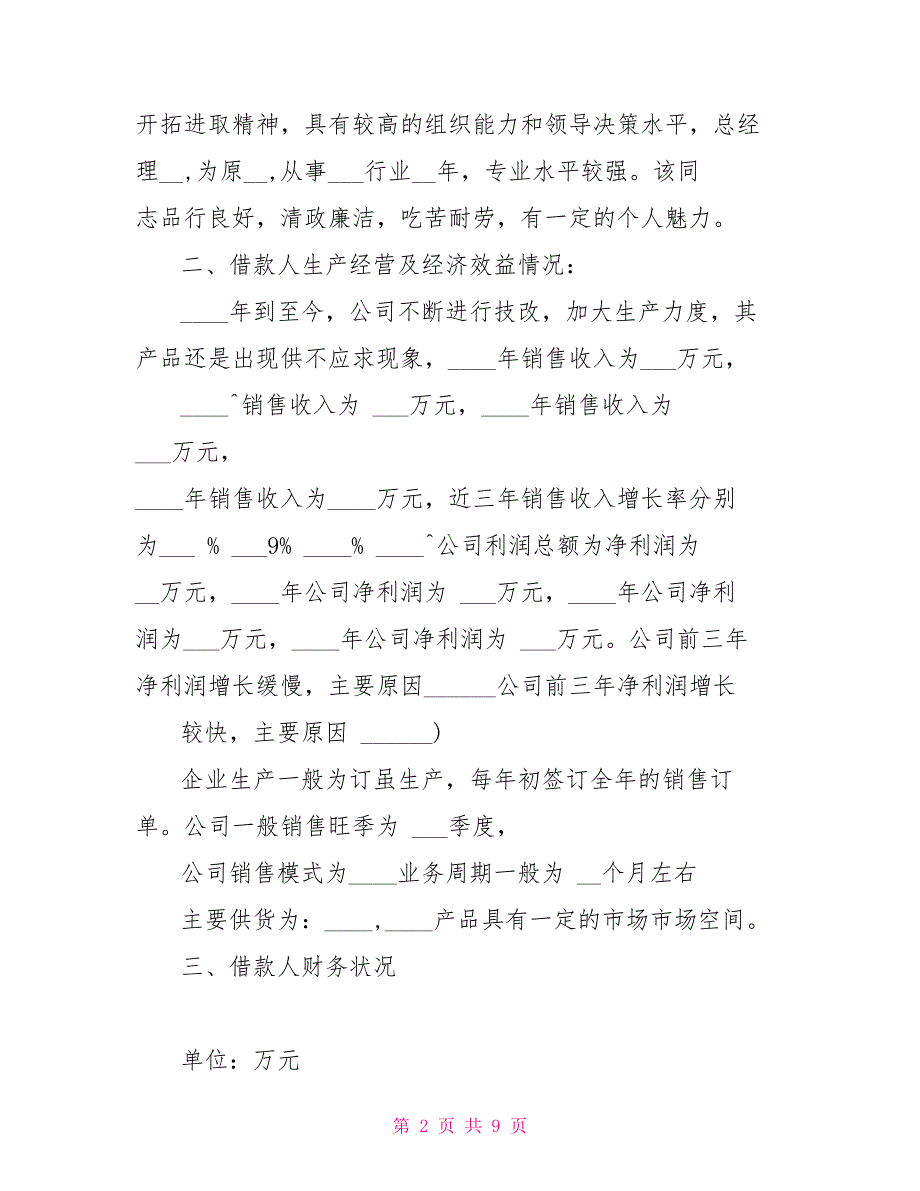 开拓进取精神，具有较高的组织能力和领导决策水平，总经
理__,为原__,从事___行业__年，专业水平较强。该同
志品行良好，清政廉洁，吃苦耐劳，有一定的个人魅力。
二、借款人生产经营及经济效益情况：
____年到至今，公司不断进行技改，加大生产力度，其
产品还是出现供不应求现象，____年销售收入为___万元，
____^销售收入为 ___万元，____年销售收入为
___万元，
____年销售收入为____万元，近三年销售收入增长率分别
为___ % ___9% ____% ____^公司利润总额为净利润为
__万元，____年公司净利润为 ___万元，____年公司净利
润为___万元，____年公司净利润为 ___万元。公司前三年
净利润增长缓慢，主要原因______公司前三年净利润增长
较快，主要原因 ______)
企业生产一般为订虽生产，每年初签订全年的销售订
单。公司一般销售旺季为 ___季度，
公司销售模式为____业务周期一般为 __个月左右
主要供货为：____,____产品具有一定的市场市场空间。
三、借款人财务状况
单位：万元
第 2 页 共 9 页